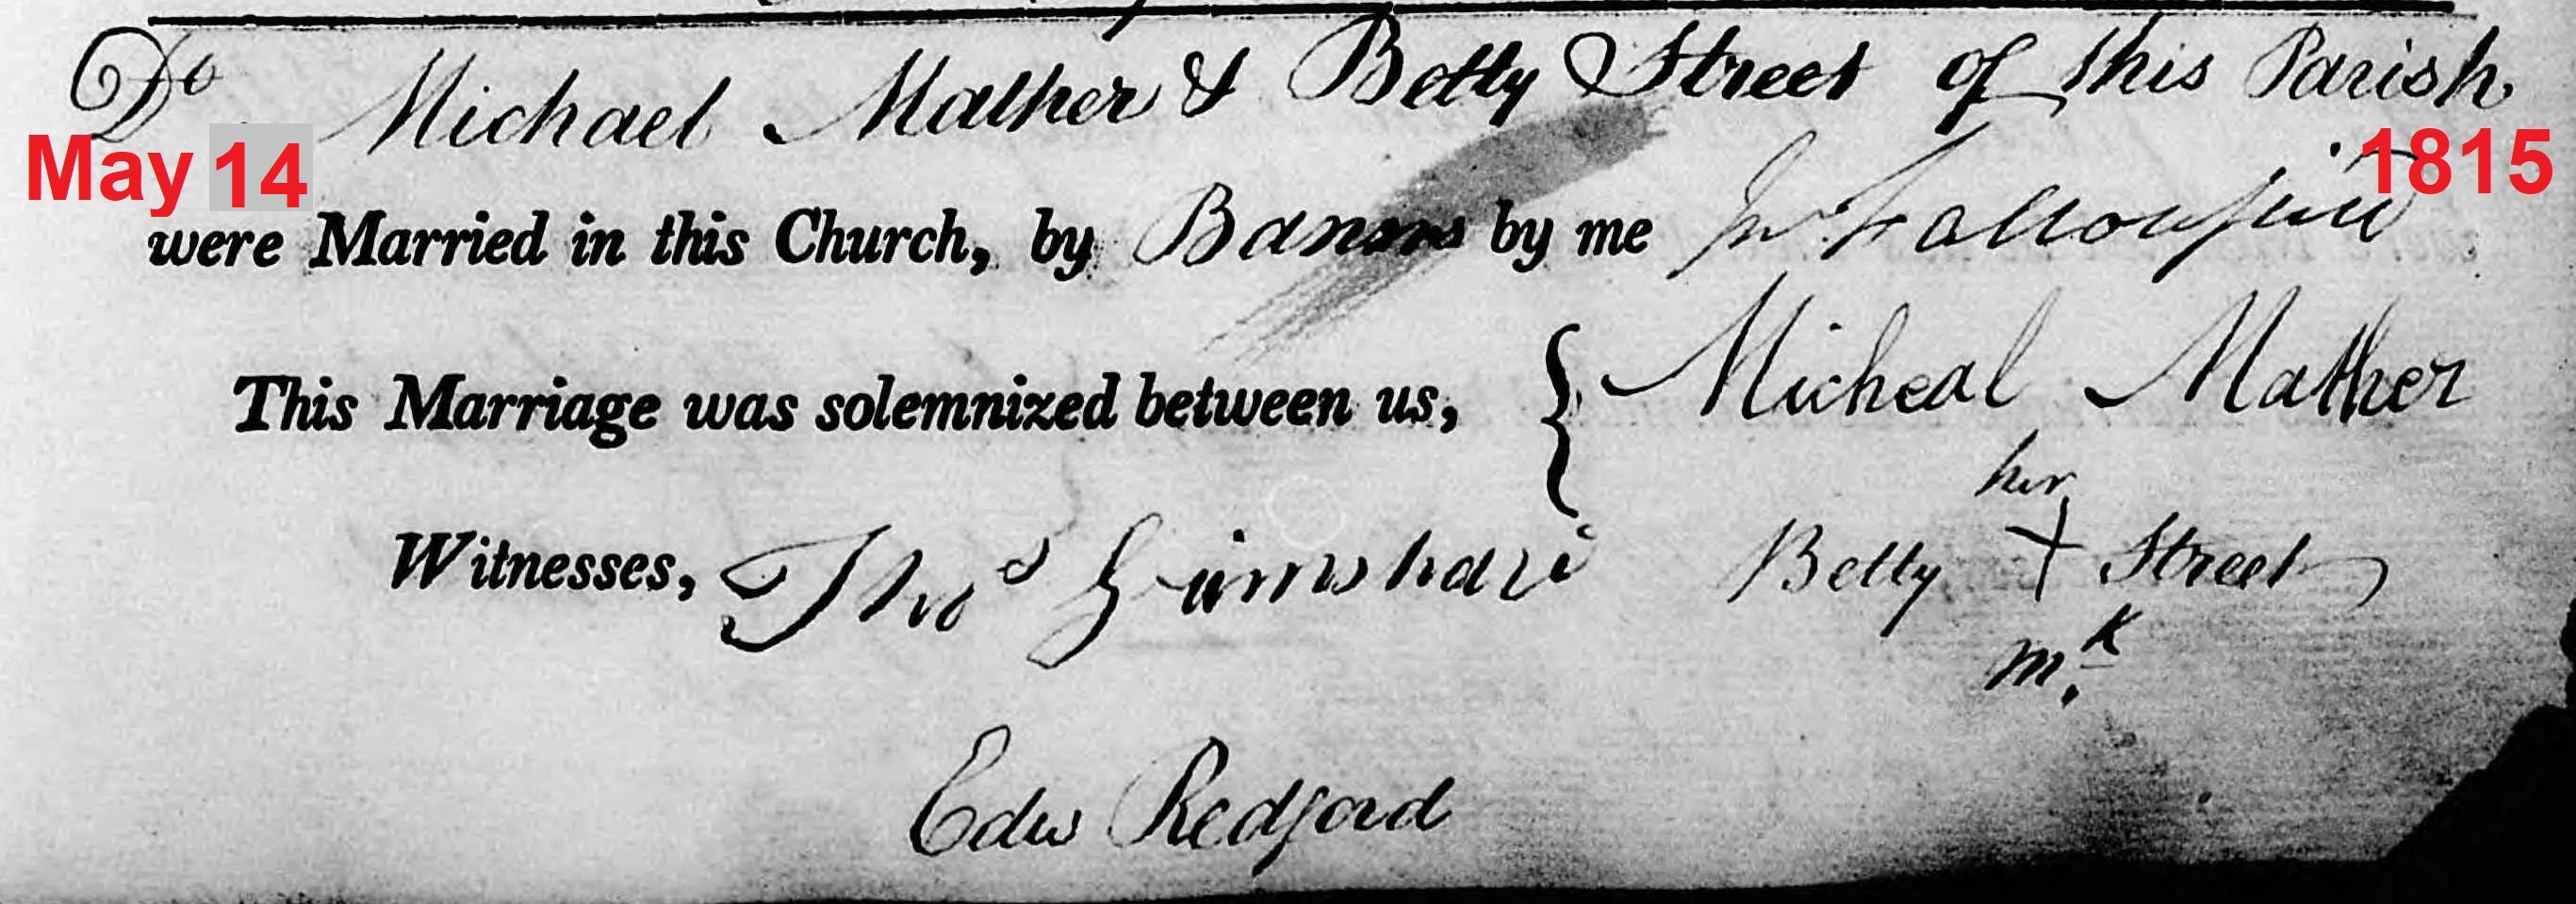 Do Michael Mather & Betty Street of this Parish
May 14 1815
were Married in this Church, by Banns by me Jn Fallowfield
This Marriage was solemnized between us, { Micheal Mather
her
Witnesses, Thos Grimshaw Betty + Street
mk
Edw Redford